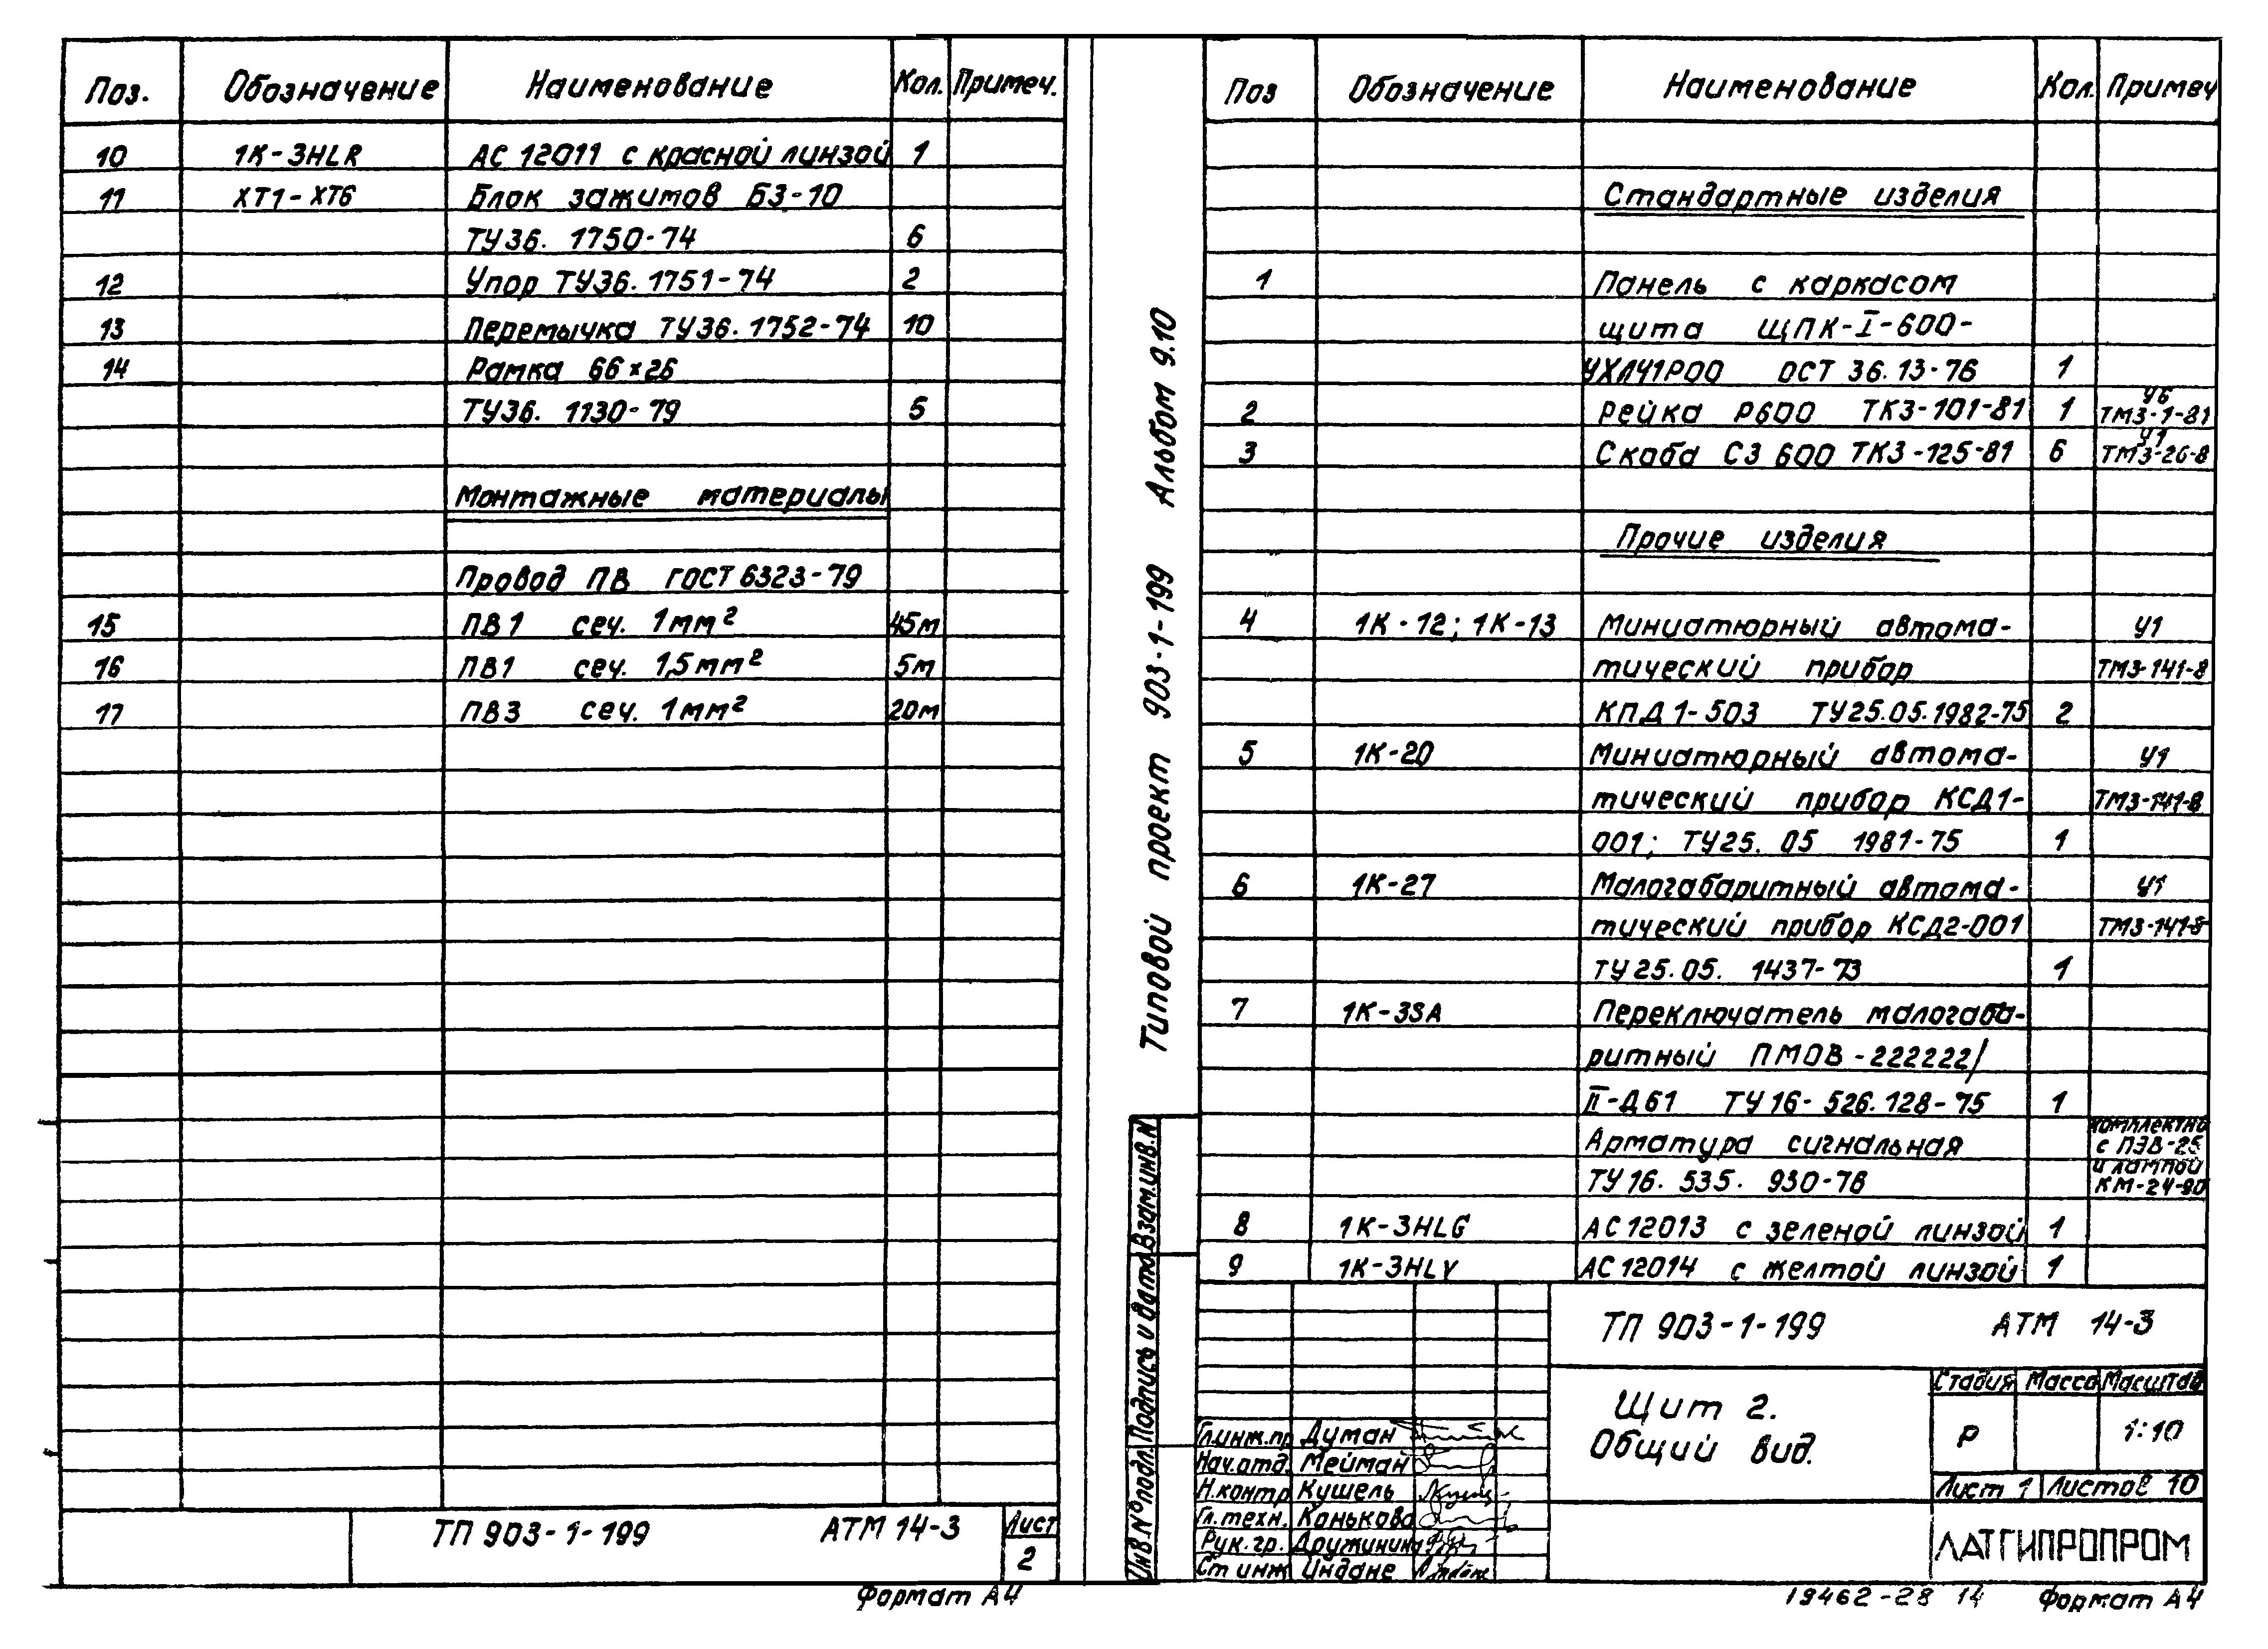 Поз. Обозначение Наименование Кол. Примеч.
10 1К-3HLR АС 12011 с красной линзой 1
11 XT1-XT6 Блок зажимов БЗ-10
ТУ36. 1750-74 6
12 Упор ТУ36. 1751-74 2
13 Перемычка ТУ36. 1752-74 10
14 Рамка 66×26
ТУ36. 1130-79 5
Монтажные материалы
Провод ПВ ГОСТ 6323-79
15 ПВ1 сеч. 1мм² 45м
16 ПВ1 сеч. 1,5мм² 5м
17 ПВ3 сеч. 1мм² 20м
ТП 903-1-199 АТМ 14-3 Лист
2
Формат А4
Типовой проект 903-1-199 Альбом 9.10
Взам.инв.N
Подпись и дата
Инв.N°подл.
Поз Обозначение Наименование Кол. Примеч
Стандартные изделия
1 Панель с каркасом
щита ЩПК-I-600-
УХЛЧ1Р00 ОСТ 36.13-76 1
2 Рейка Р600 ТК3-101-81 1 У6 ТМ3-1-81
3 Скоба С3 600 ТК3-125-81 6 У1 ТМ3-26-8
Прочие изделия
4 1К-12; 1К-13 Миниатюрный автома- У1
тический прибор ТМ3-141-8
КПД1-503 ТУ25.05.1982-75 2
5 1К-20 Миниатюрный автома- У1
тический прибор КСД1- ТМ3-141-8
001; ТУ25. 05 1981-75 1
6 1К-27 Малогабаритный автома- У1
тический прибор КСД2-001 ТМ3-141-8
ТУ25.05. 1437-73 1
7 1К-3SA Переключатель малогаба-
ритный ПМОВ-222222/
II-Д61 ТУ16-526.128-75 1
Арматура сигнальная комплектно с ПЭВ-25
ТУ16. 535. 930-76 и лампой КМ-24-90
8 1К-3HLG АС12013 с зеленой линзой 1
9 1К-3HLY АС12014 с желтой линзой 1
ТП 903-1-199 АТМ 14-3
Щит 2.
Общий вид.
Стадия Масса Масштаб
Р 1:10
Лист 1 Листов 10
ЛАТГИПРОПРОМ
Гл.инж.пр Думан
Нач.отд. Мейман
Н.контр Кушель
Гл.техн. Конькова
Рук.гр. Дружинина
Ст инж Индане
19462-28 14 Формат А4